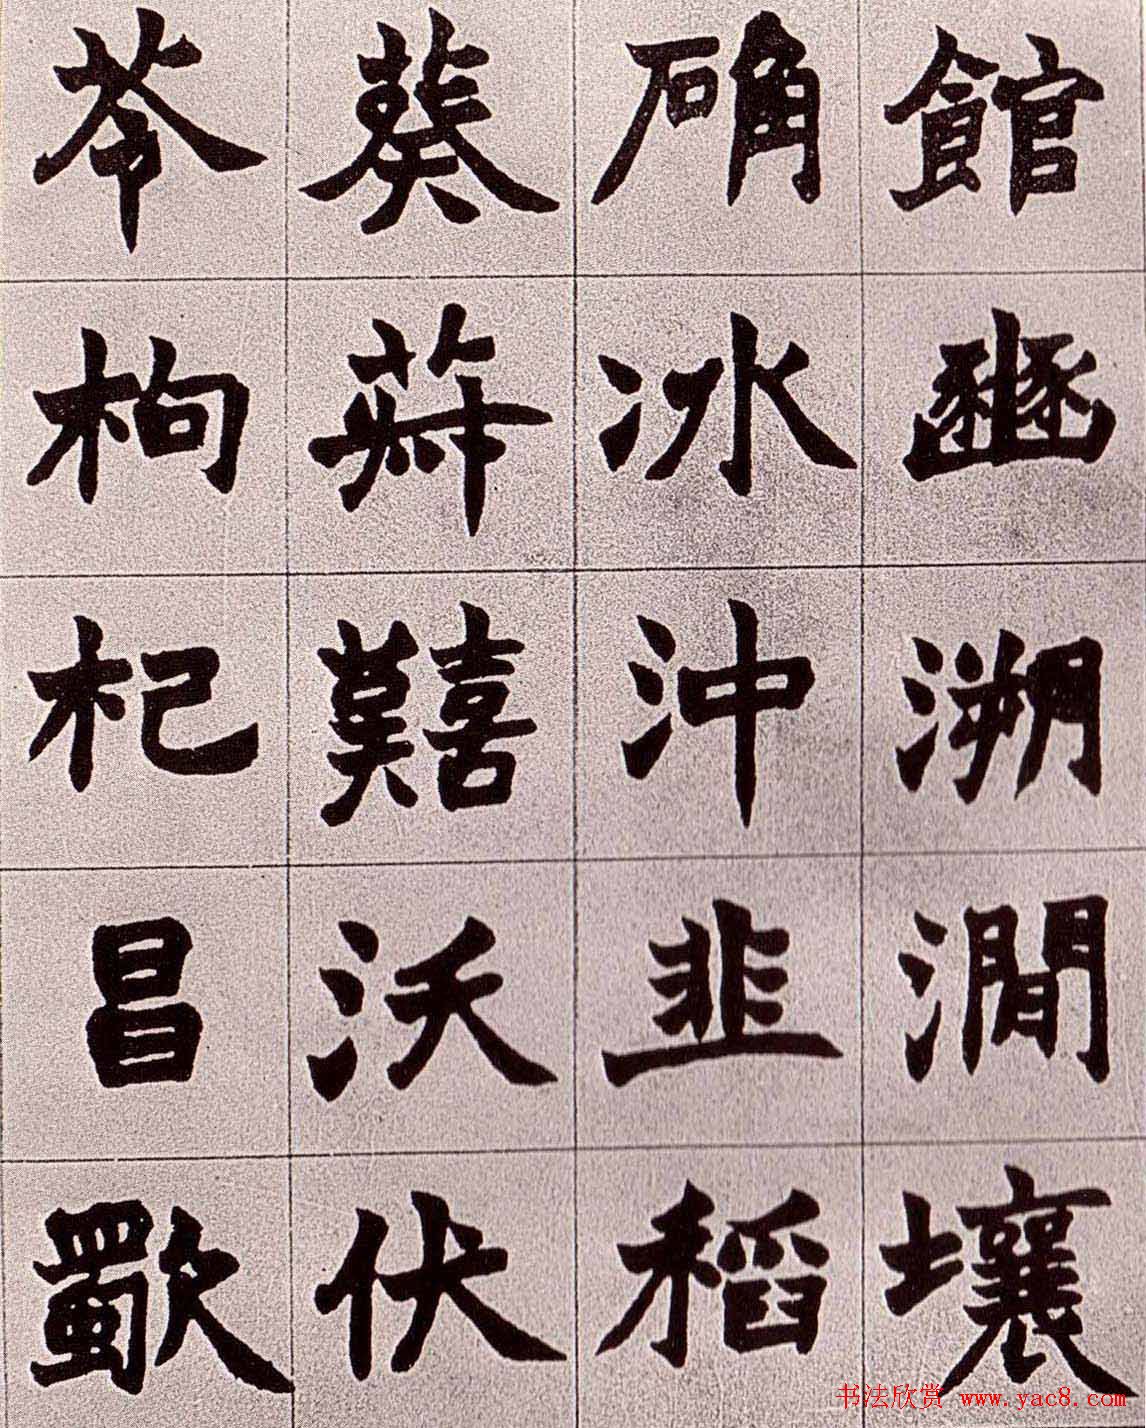 館豳溯澗壤
确冰沖韭稻
葵囏沃伏
苓枸杞昌歜
书法欣赏 www.yac8.com